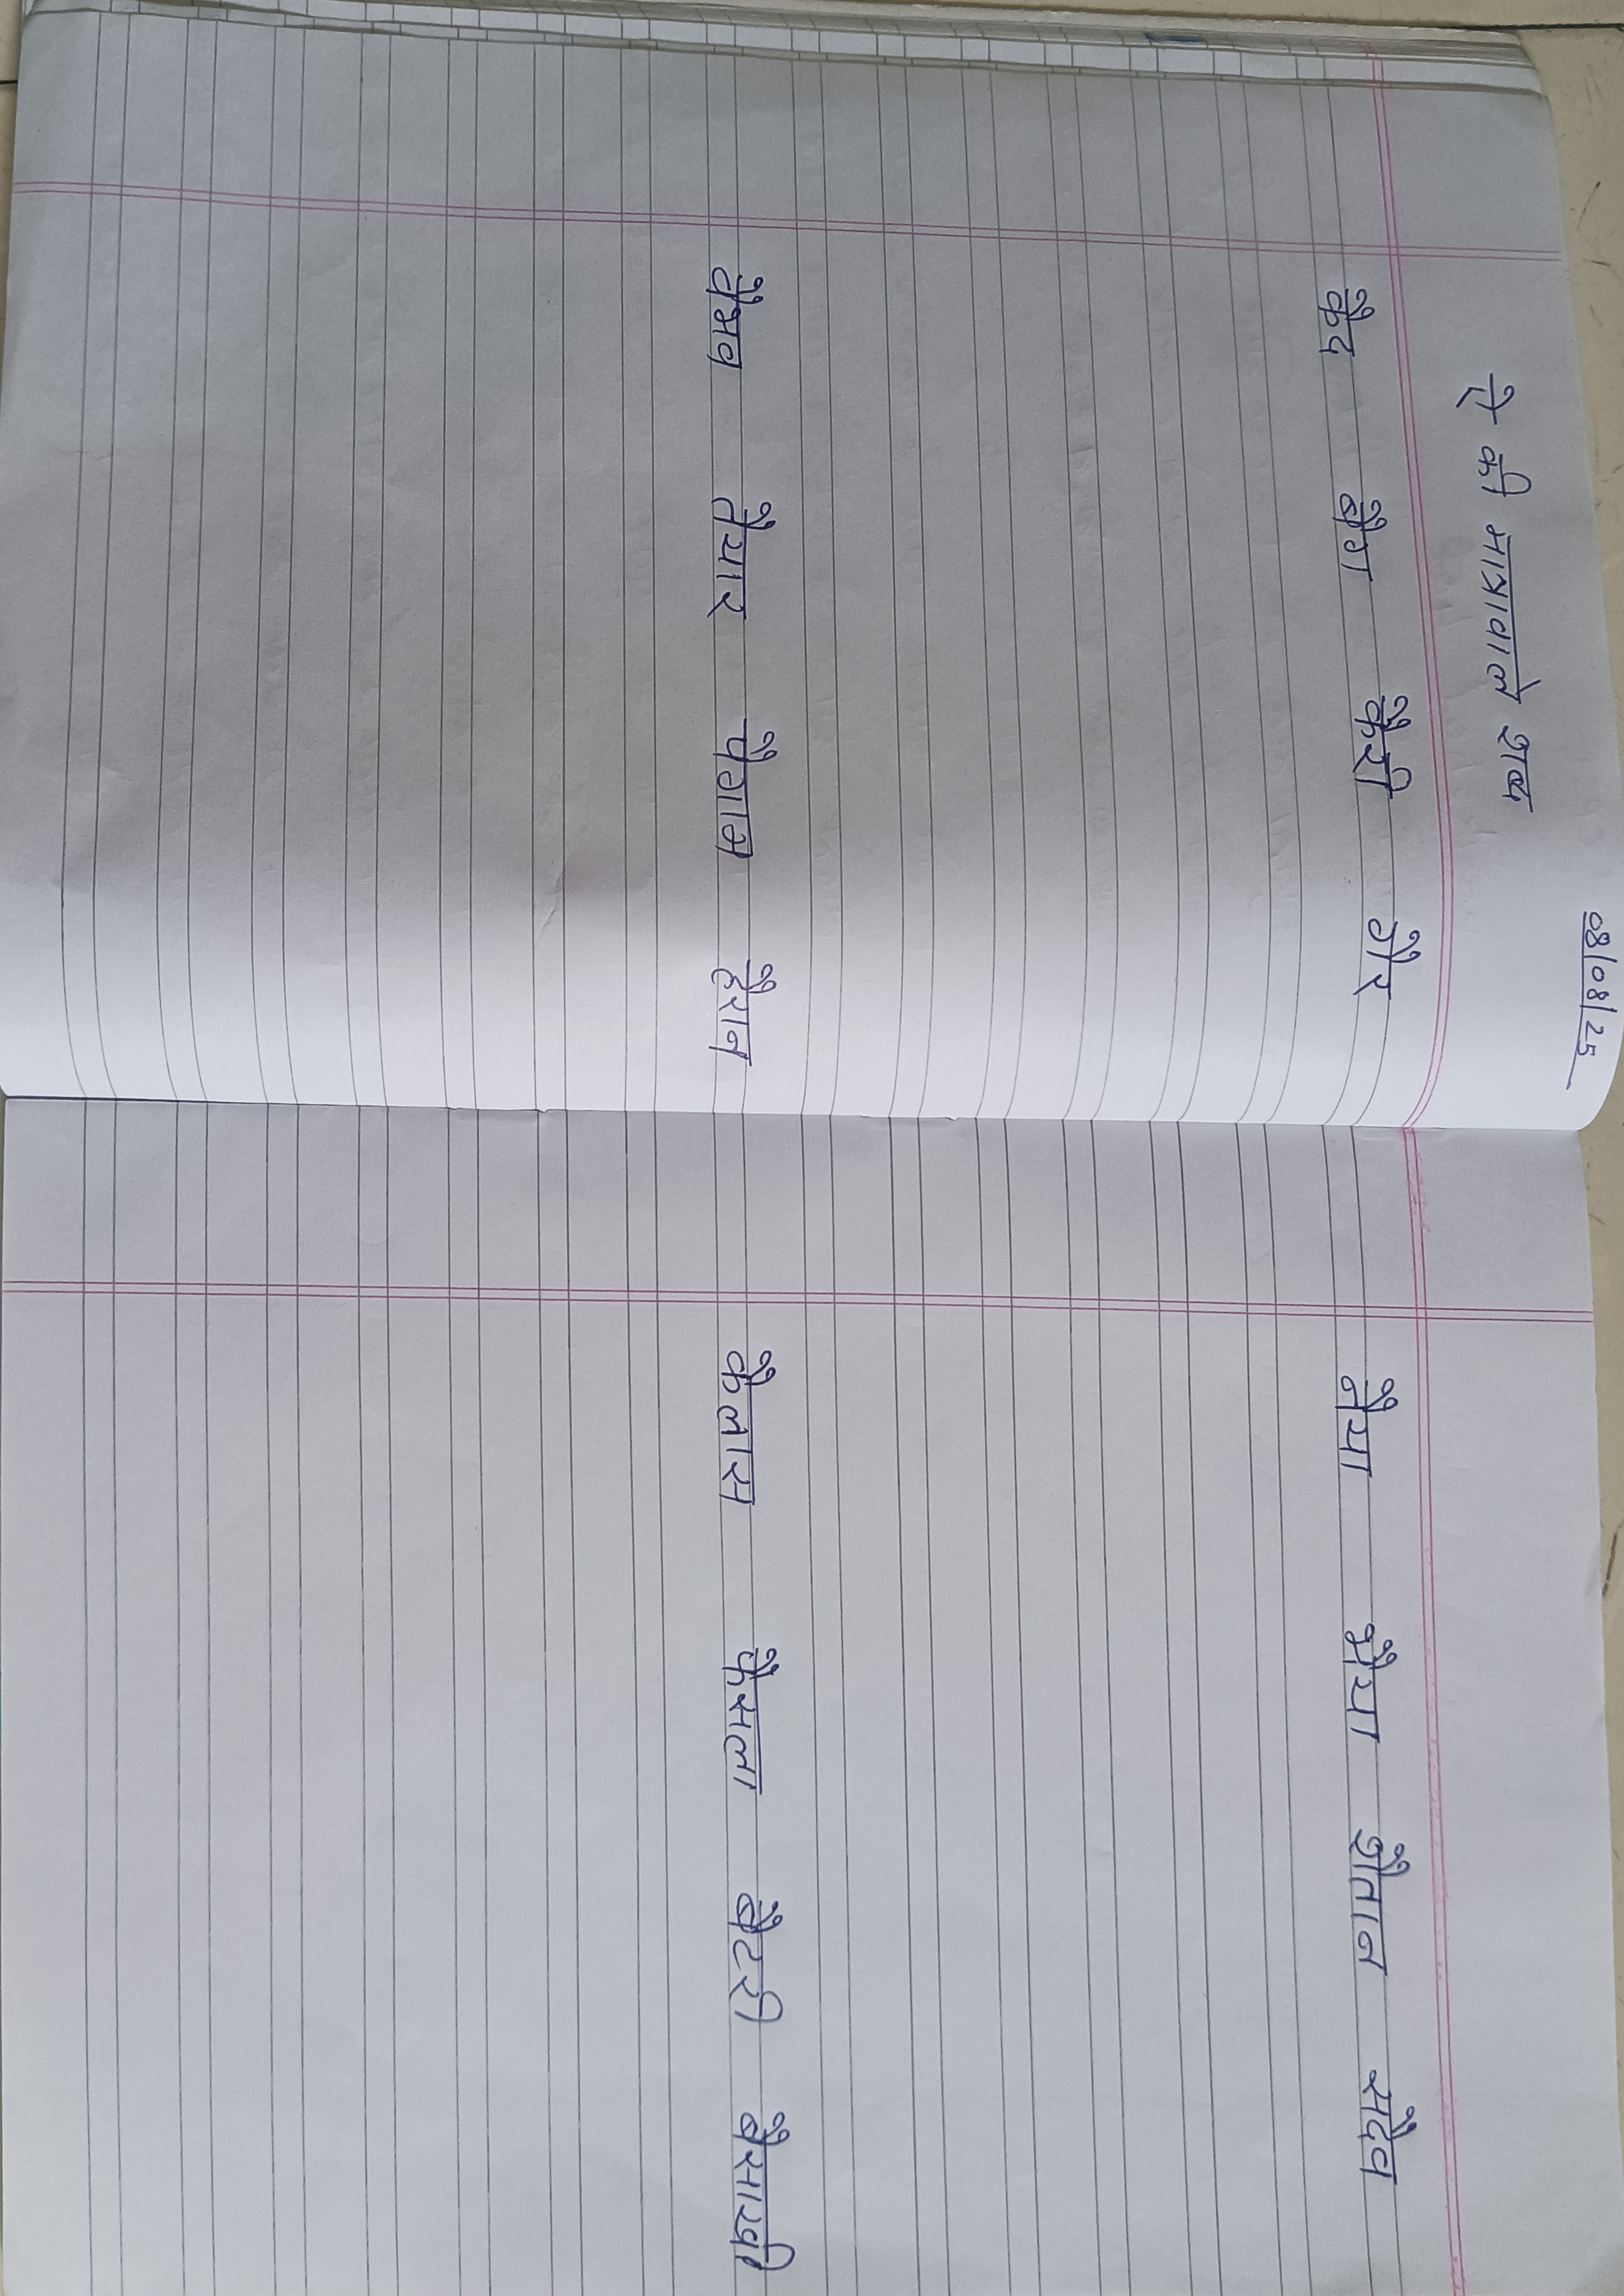 08/08/25
ऐ की मात्रावाले शब्द
कैद बैग कैरी गैर
वैभव तैयार पैगाम हैरान
नैया भैया शैतान सदैव
कैलास फैसला बैटरी बैसाखी